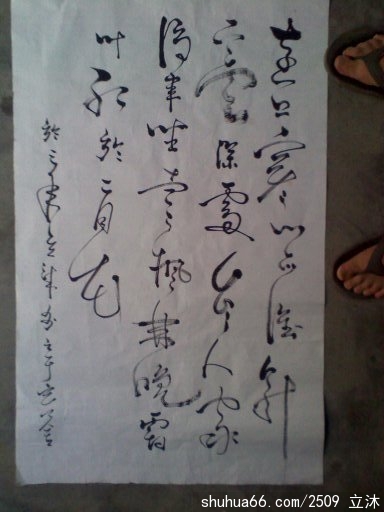 远上寒山石径斜
白云深處有人家
停車坐愛楓林晚霜
叶红於二月花
shuhua66.com/2509 立沐